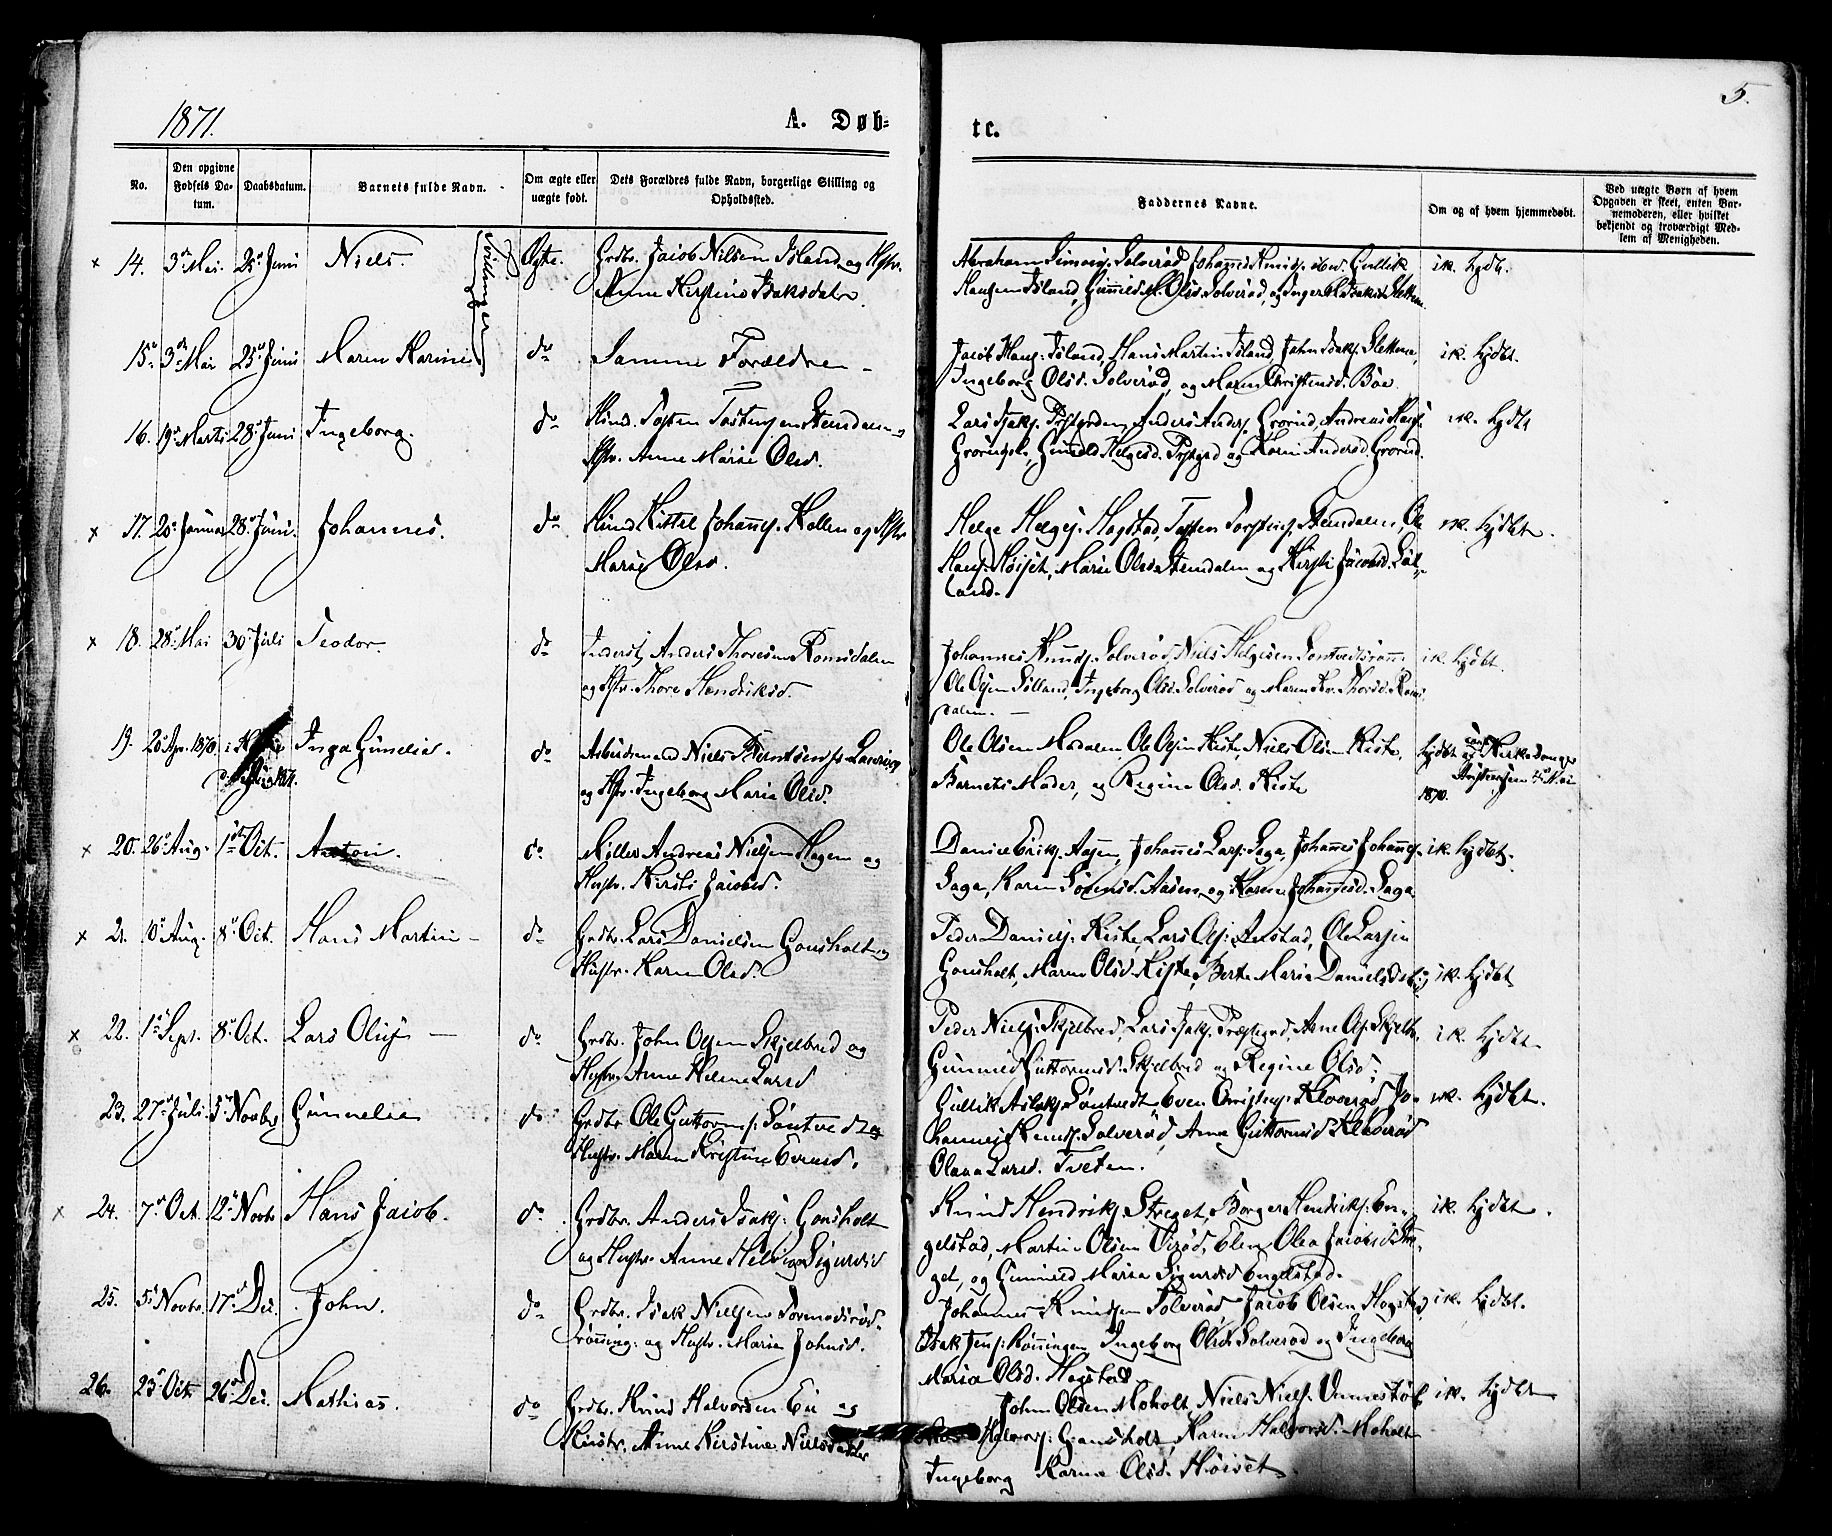 1871.
A. Døb=
te.
5.
No.
Den opgivne Fødsels Da-tum.
Daabsdatum.
Barnets fulde Navn.
Om ægte eller uægte født.
Dets Forældres fulde Navn, borgerlige Stilling og Opholdssted.
Faddernes Navne.
Om og af hvem hjemmedøbt.
Ved uægte Børn af hvem Opgaven er skeet, enten Bar-nemoderen, eller hvilket bekjendt og troværdigt Med-lem af Menigheden.
Tvillinger
x 14. 3 Mai 25 Juni Niels. Ægte. Grdbr. Jacob Nilsen Island og Hstr.
Anne Kirstine Isaksdatr.
Abraham Solverød, Johannes Knuds. ibd. Gullik
Hansen Island, Olsd. Solverød, og Inger
ik. hjdbt.
15. 3 Mai 25 Juni Maren Karine do Samme Forældre
Jacob Hans. Island, Hans Martin Island, John Isaks. Slettene,
Ingeborg Olsd. Solverød, og Maren Christensd. Bøe.
ik. hjdbt.
16. 19 Marts 28 Juni Ingeborg. do
Hstr. Anne Marie Olsd.
Lars Isaks. Anders Anders. Grorud, Andreas Hans.
Helgesd. og Karen Andersd. Grorud.
ik. hjdbt
x 17. 20 Januar 28. Juni. Johannes. do Kittel Johannes. Kollen og Hstr.
Marie Olsd.
Helge Helges. Hogstad, Torstens. Stendalen, Ole
Hans. Høiset, Marie Olsd. Stendalen og Kirsti Jacobsd. Søl-
land.
ik. hjdbt.
x 18. 28 Mai 30 Juli Teodor. do Inderst, Anders Thoresen Romsdalen
og Hstr. Thore Hendriksd.
Johannes Knuds. Solverød, Niels Helgesen
Ole Olsen Sølland, Ingeborg Olsd. Solverød og Maren Thorsd. Roms-
dalen.
ik. hjdbt.
19. 1870. Inga Gunelia. do Arbeidsmand Niels
og Hstr. Ingeborg Maria Olsd.
Ole Olsen Modalen, Ole Olsen Kiste, Niels Olsen Kiste,
Barnets Moder, og Regine Olsd. Kiste
hjdbt af Kirkesanger
Mai
1870.
x 20. 26 Aug. 1 Oct. Anton. do Møller Andreas Nielsen Hagen og
Hustr. Kirsti Jacobsd.
Daniel Eriks. Aasen, Johannes Lars. Saga, Johannes Johannes.
Saga, Karen Sørensd. Aasen, og Karen Johannesd. Saga
ik. hjdbt.
x 21. Aug. 8 Oct. Hans Martin do Grdbr. Lars Danielsen Gonsholt og
Hustr. Karen Olsd.
Peder Daniels. Kiste, Lars Ols. Ole Larsen
Gonsholt, Maren Olsd. Kiste, Berte Maria Danielsd. ibid
ik. hjdbt
x 22. 1 Sept. 8 Oct. Lars Oluf do Grdbr. John Olsen Skjelbred og
Hustr. Anne Helene Larsd
Peder Niels. Skjelbred, Lars Isaks. Præstegrd, Arne Ols. Skjelb.
Gunnild Guttormsd. Skjelbred og Regine Olsd.
ik. hjdbt.
23. 27 Juli 5 Novbr Gunnelia do Grdbr. Ole Guttorms. Søntvedt og
Hustr. Maren Kristine Evensd.
Gullik Aslaks. Søntvedt Even Kleverød Jo-
hannes Knuds. Solverød, Anne Guttormsd Kleverød
Olava Larsd. Tveten.
ik. hjdbt.
x 24. 7 Oct. 12 Novbr Hans Jacob. do Grdbr. Anders Isaks. Gonsholt
og Hustr. Anne Helvig Sigursd
Knud Hendriks. Streget, Borger Hendriks. En-
gelstad, Martin Olsen Elen Olea Jacobsd Stre-
get, og Gunnild Maria Sigursd Engelstad.
ik. hjdbt.
25. 5 Novbr. 17 Dec. John. do Grdbr. Isak Nielsen Tormodsrød-
rønning. og Hustr. Maria Johnsd.
Johannes Knudsen Solverød Jacob Olsen Hogstad
Isak Jens. Rønningen Ingeborg Olsd. Solverød og Ingeborg
Maria Olsd. Hogstad
ik. hjdbt.
26. 23 Oct. 26 Dec. Mathias. do Grdbr. Knud Halvorsen Eie og
Hustr. Anne Kirstine Nielsdatter
John Olsen Moholt, Niels Niels.
Halvors. Gonsholt, Karen Halvorsd. Moholt
Ingeborg Karine Olsd. Høiset.
ik. hjdbt